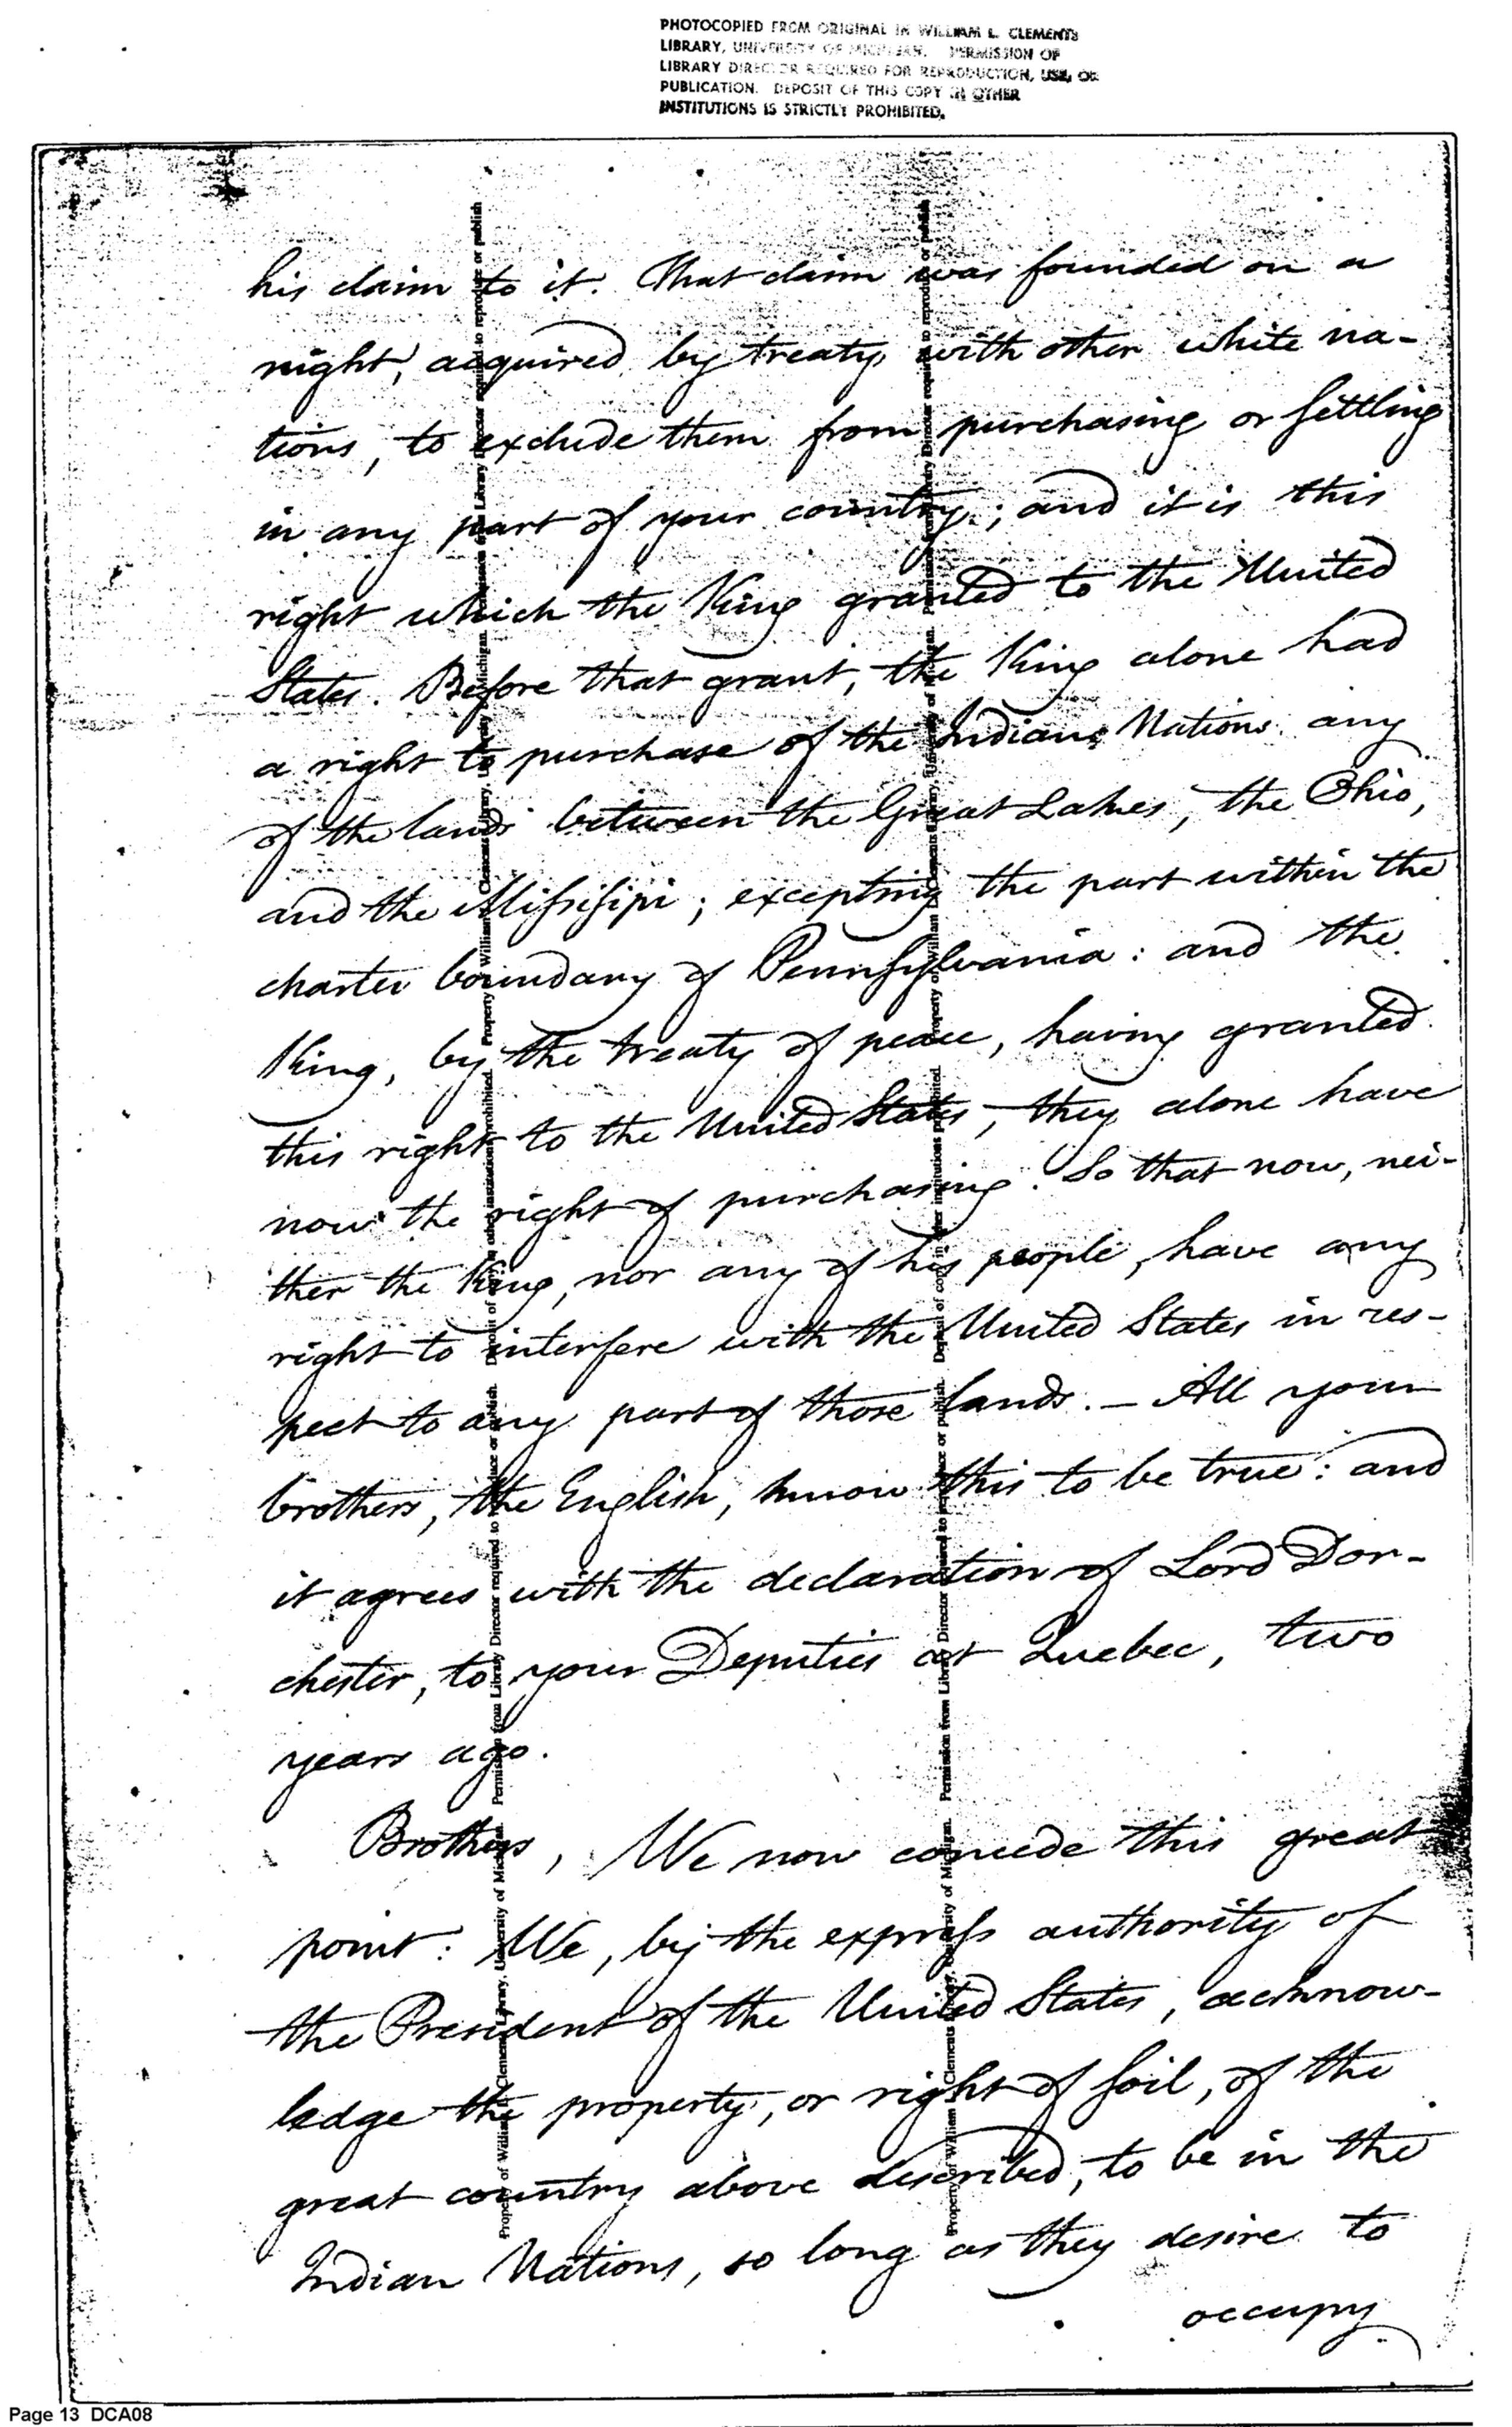 PHOTOCOPIED FROM ORIGINAL IN WILLIAM L. CLEMENTS
LIBRARY, UNIVERSITY OF MICHIGAN. PERMISSION OF
LIBRARY DIRECTOR REQUIRED FOR REPRODUCTION, USE, OR
PUBLICATION. DEPOSIT OF THIS COPY IN OTHER
INSTITUTIONS IS STRICTLY PROHIBITED.
his claim to it. That claim was founded on a
right, acquired by treaty, with other white na-
tions, to exclude them from purchasing or settling
in any part of your country; and it is this
right which the King granted to the United
States. Before that grant, the King alone had
a right to purchase of the Indian Nations any
of the lands between the Great Lakes, the Ohio,
and the Missisipi; excepting the part within the
charter boundary of Pennsylvania: and the
King, by the treaty of peace, having granted
this right to the United States, they alone have
now the right of purchasing. So that now, nei-
ther the King, nor any of his people, have any
right to interfere with the United States in res-
pect to any part of those lands. — All your
brothers, the English, know this to be true: and
it agrees with the declaration of Lord Dor-
chester, to your Deputies at Quebec, two
years ago.
Brothers, We now concede this great
point: We, by the express authority of
the President of the United States, acknow-
ledge the property, or right of soil, of the
great country above described, to be in the
Indian Nations, so long as they desire to
occupy
Property of William L. Clements Library, University of Michigan. Permission from Library Director required to reproduce or publish. Deposit of copy in other institutions prohibited. Property of William L. Clements Library, University of Michigan. Permission from Library Director required to reproduce or publish
Property of William L. Clements Library, University of Michigan. Permission from Library Director required to reproduce or publish. Deposit of copy in other institutions prohibited. Property of William L. Clements Library, University of Michigan. Permission from Library Director required to reproduce or publish
Page 13 DCA08